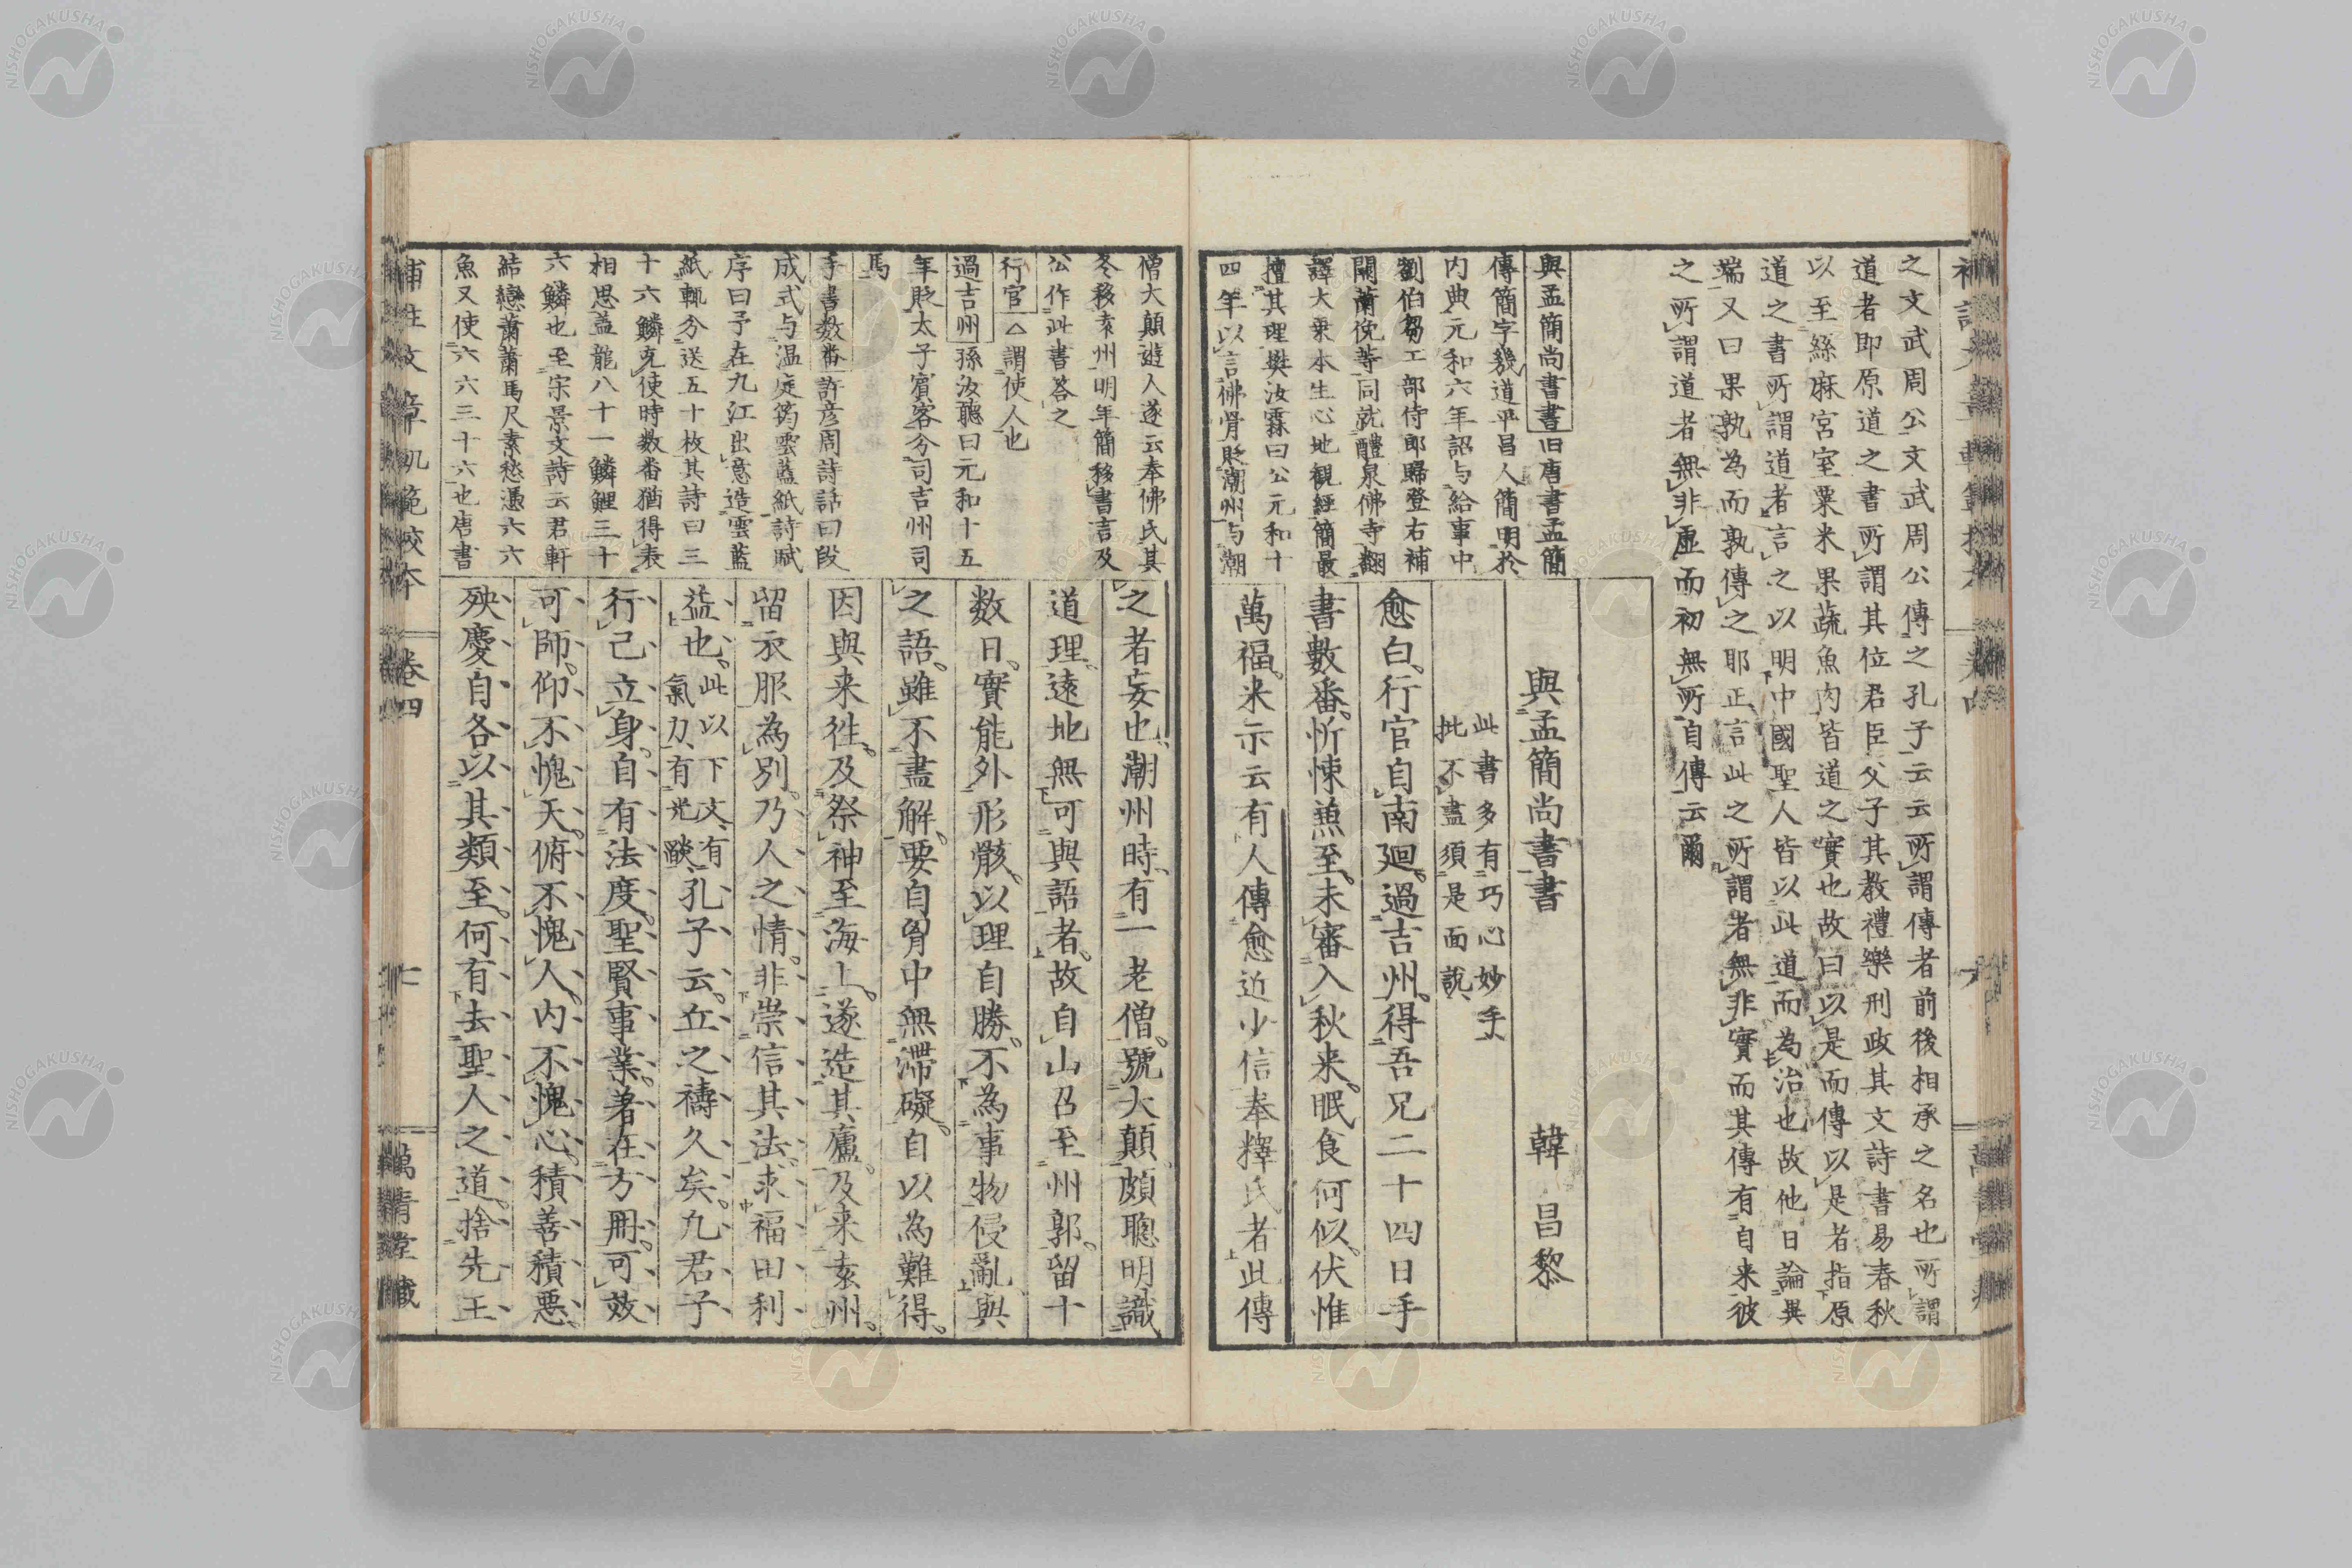 之文武周公文武周公傳之孔子云云所謂傳者前後相承之名也所謂
道者即原道之書所謂其位君臣父子其教禮樂刑政其文詩書易春秋
以至絲麻宮室粟米果蔬魚肉皆道之實也故曰以是而傳以是者指原
道之書所謂道者言之以明中國聖人皆以此道而為治也故他日論異
端又曰果孰為而孰傳之耶正言此之所謂者無非實而其傳有自来彼
之所謂道者無非虛而初無所自傳云爾
與孟簡尚書書旧唐書孟簡
傳簡字幾道平昌人簡明於
内典元和六年詔与給事中
劉伯芻工部侍郎歸登右補
闕蕭俛等同就醴泉佛寺翻
譯大乗本生心地観經簡最
擅其理樊汝霖曰公元和十
四年以言佛骨貶潮州与潮
與孟簡尚書書 韓昌黎
此書多有巧心妙手
批不盡須是面說
愈白行官自南廻過吉州得吾兄二十四日手
書數番忻悚兼至未審入秋来眠食何似伏惟
萬福来示云有人傳愈近少信奉釋氏者此傳
僧大顛遊人遂云奉佛氏其
冬移袁州明年簡移書言及
公作此書答之
行官△謂使人也
過吉州孫汝聽曰元和十五
年貶太子賓客分司吉州司
馬
手書数番許彦周詩話曰段
成式与温庭筠雲藍紙詩賦
序曰予在九江出意造雲藍
紙輒分送五十枚其詩曰三
十六鱗充使時数番猶得表
相思蓋龍八十一鱗鯉三十
六鱗也至宋景文詩云君軒
結戀蕭蕭馬尺素愁憑六六
魚又使六六三十六也唐書
之者妄也潮州時有一老僧號大顛頗聰明識
道理遠地無可與語者故自山召至州郭留十
数日實能外形骸以理自勝不為事物侵亂與
之語雖不盡解要自胷中無滯礙自以為難得
因與来徃及祭神至海上遂造其廬及来袁州
留衣服為別乃人之情非崇信其法求福田利
益也此以下文有氣力有光燄孔子云丘之禱久矣凡君子
行己立身自有法度聖賢事業著在方冊可效
可師仰不愧天俯不愧人内不愧心積善積惡
殃慶自各以其類至何有去聖人之道捨先王
補註文章軌範校本 卷四 十 萬青堂藏